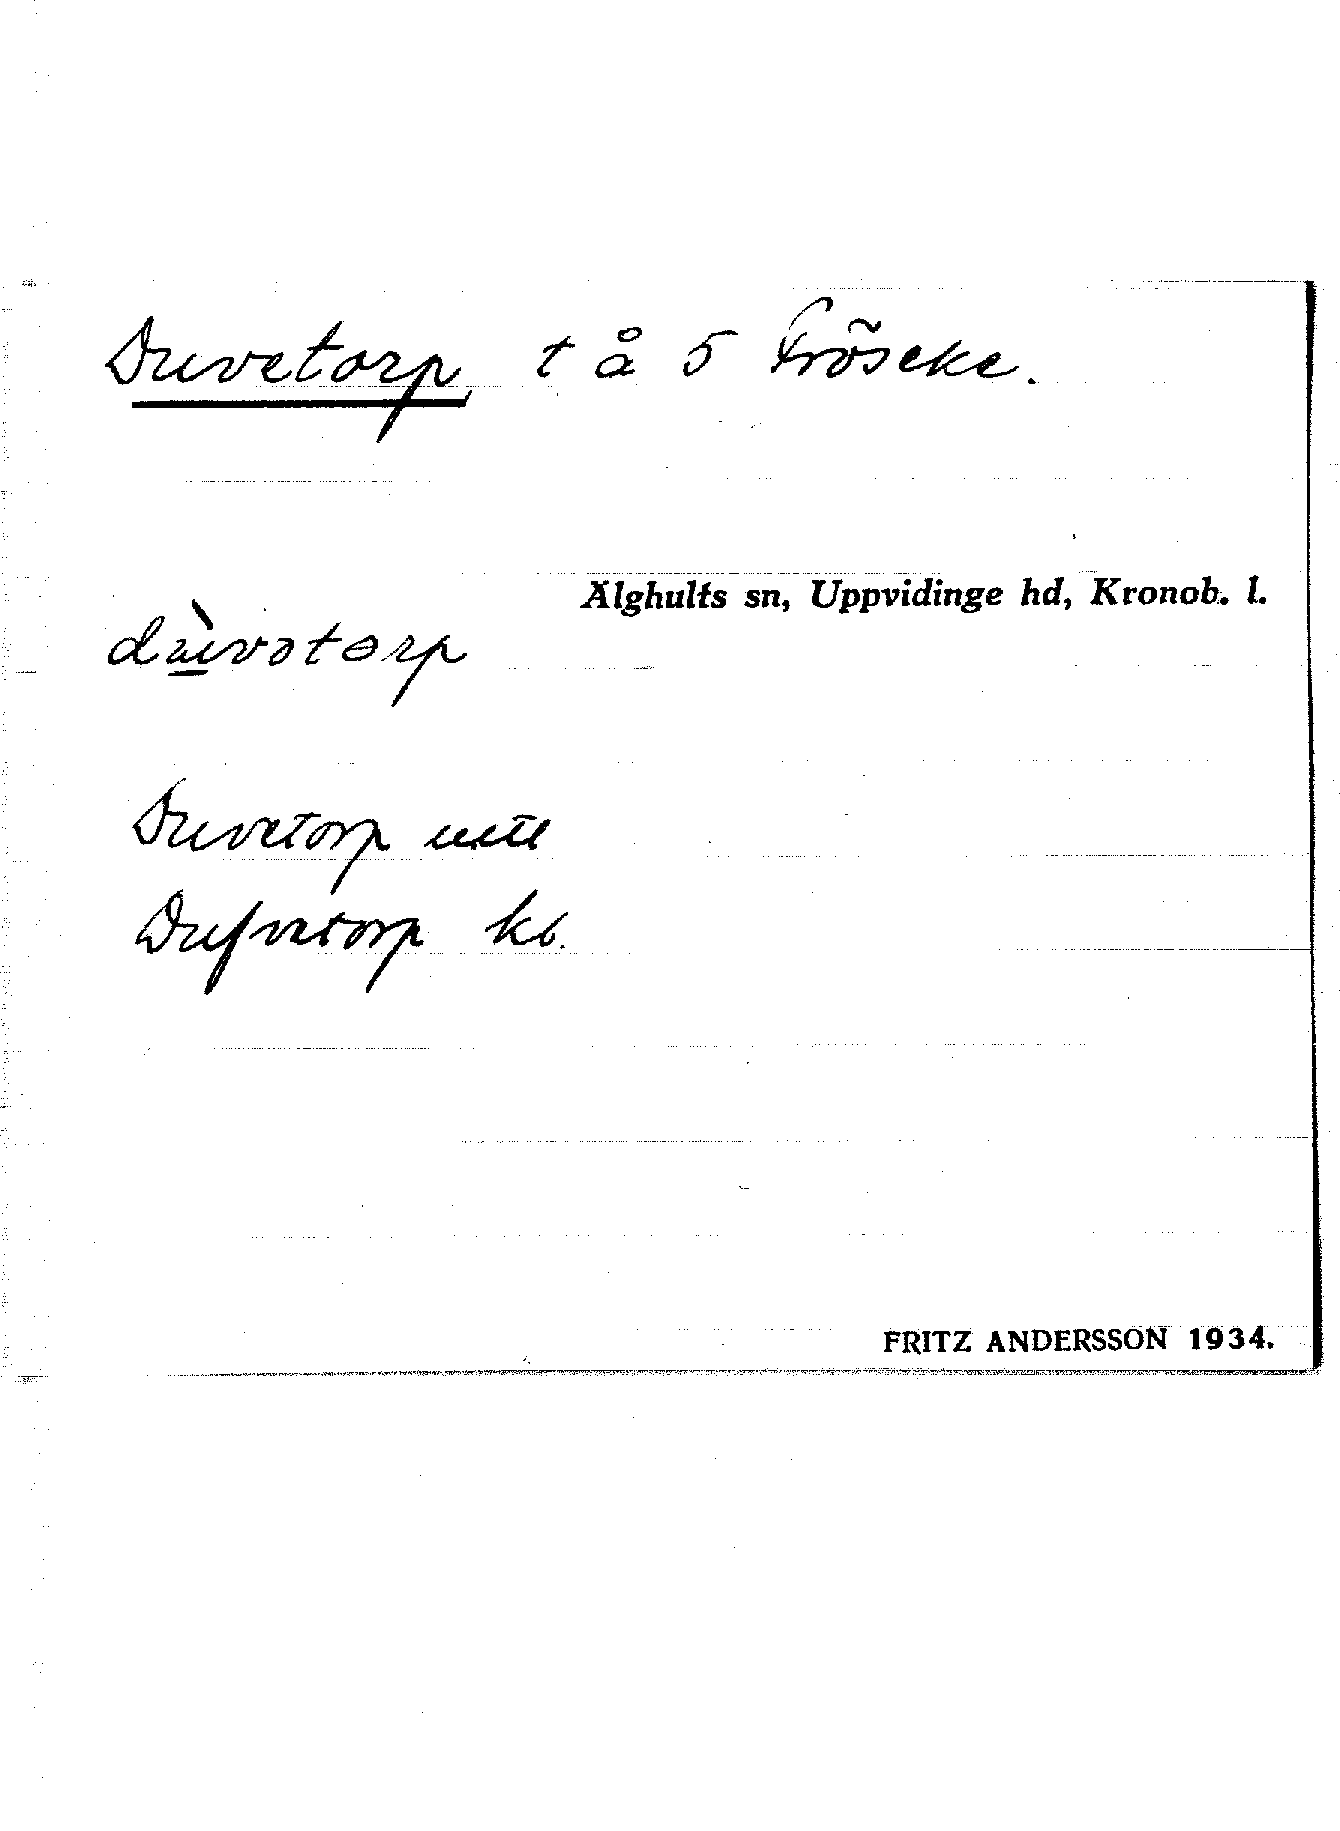 Duvetorp t å 5 Fröseke.
Älghults sn, Uppvidinge hd, Kronob. l.
dùvətorp
Duvetorp uttl
Dufvetorp kb.
FRITZ ANDERSSON 1934.